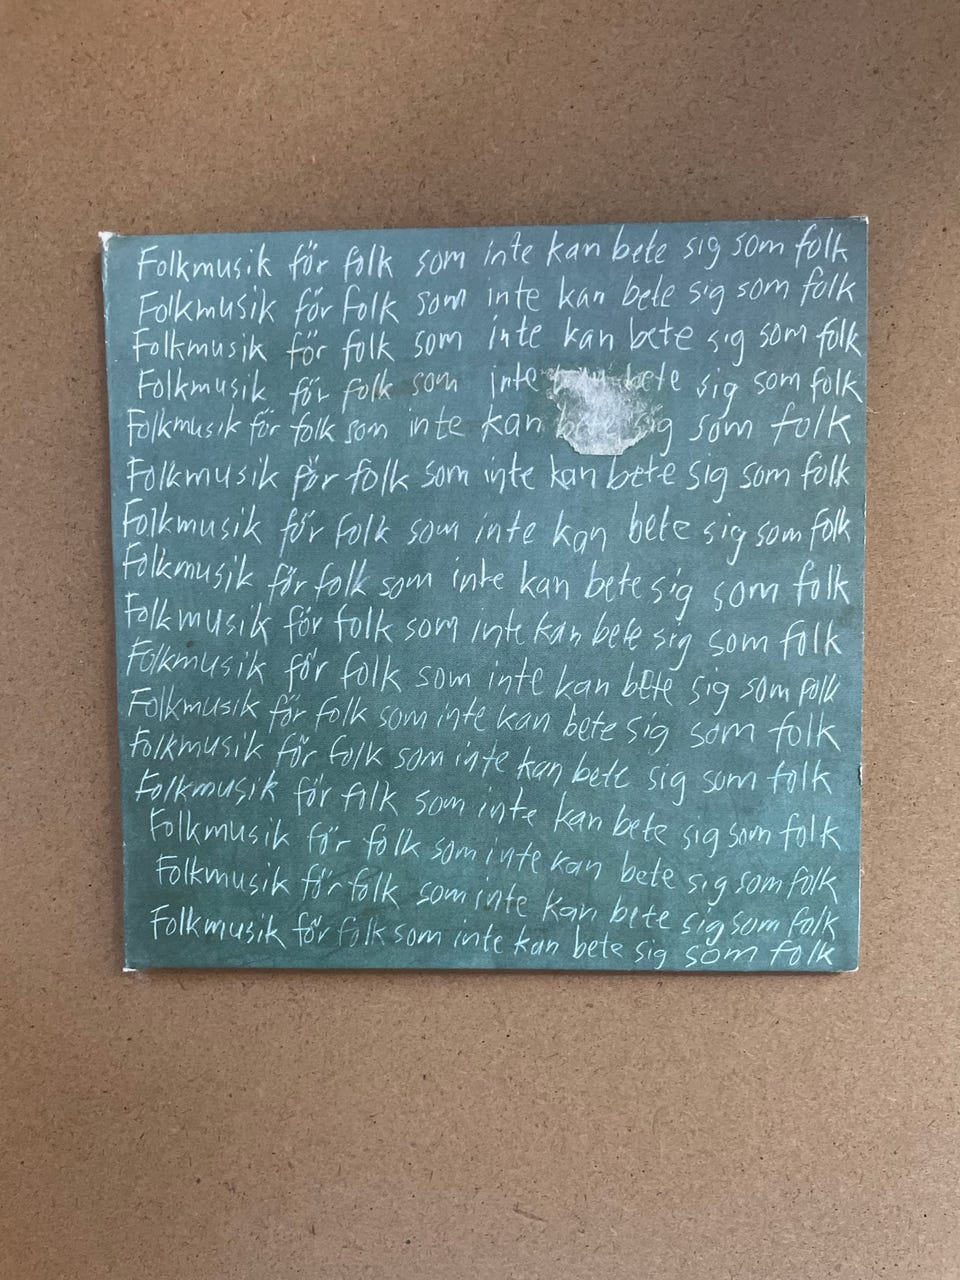 Folkmusik för folk som inte kan bete sig som folk
Folkmusik för folk som inte kan bete sig som folk
Folkmusik för folk som inte kan bete sig som folk
Folkmusik för folk som inte bete sig som folk
Folkmusik för folk som inte kan sig som folk
Folkmusik för folk som inte kan bete sig som folk
Folkmusik för folk som inte kan bete sig som folk
Folkmusik för folk som inte kan bete sig som folk
Folkmusik för folk som inte kan bete sig som folk
Folkmusik för folk som inte kan bete sig som folk
Folkmusik för folk som inte kan bete sig som folk
Folkmusik för folk som inte kan bete sig som folk
Folkmusik för folk som inte kan bete sig som folk
Folkmusik för folk som inte kan bete sig som folk
Folkmusik för folk som inte kan bete sig som folk
Folkmusik för folk som inte kan bete sig som folk